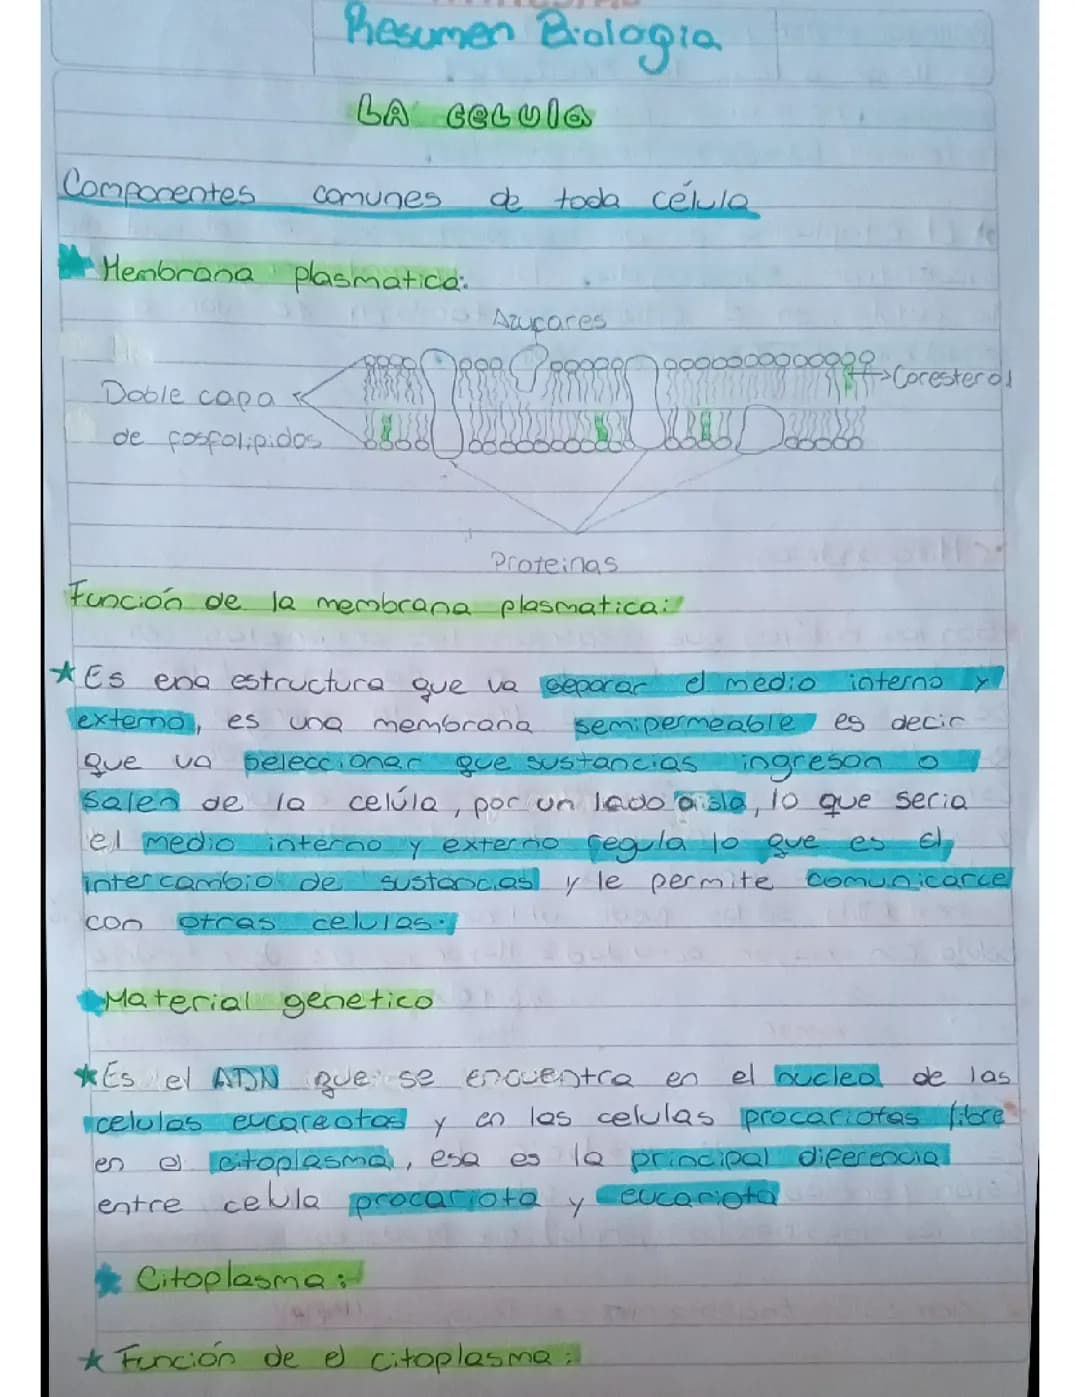 Resumen Biologia
LA CELULA
Componentes comunes de toda célula
Membrana plasmatica:
Azucares
Coresterol
Doble capa
de fosfolipidos
Proteinas
Función de la membrana plasmatica:
Es ena estructura que va separar el medio interno y
externo, es una membrana semipermeable es decir
que va seleccionar que sustancias ingreson o
salen de la celúla, por un lado aisla, lo que seria
el medio interno y externo regula lo que es el
intercambio de sustancias y le permite comunicarce
con otras celulas.
Material genetico
Es el ADN que se encuentra en el nucleo de las
celulas eucareotas y en las celulas procariotas libre
en el citoplasma, esa es la principal diferencia
entre celula procariota y eucariota
Citoplasma:
Función de el citoplasma: